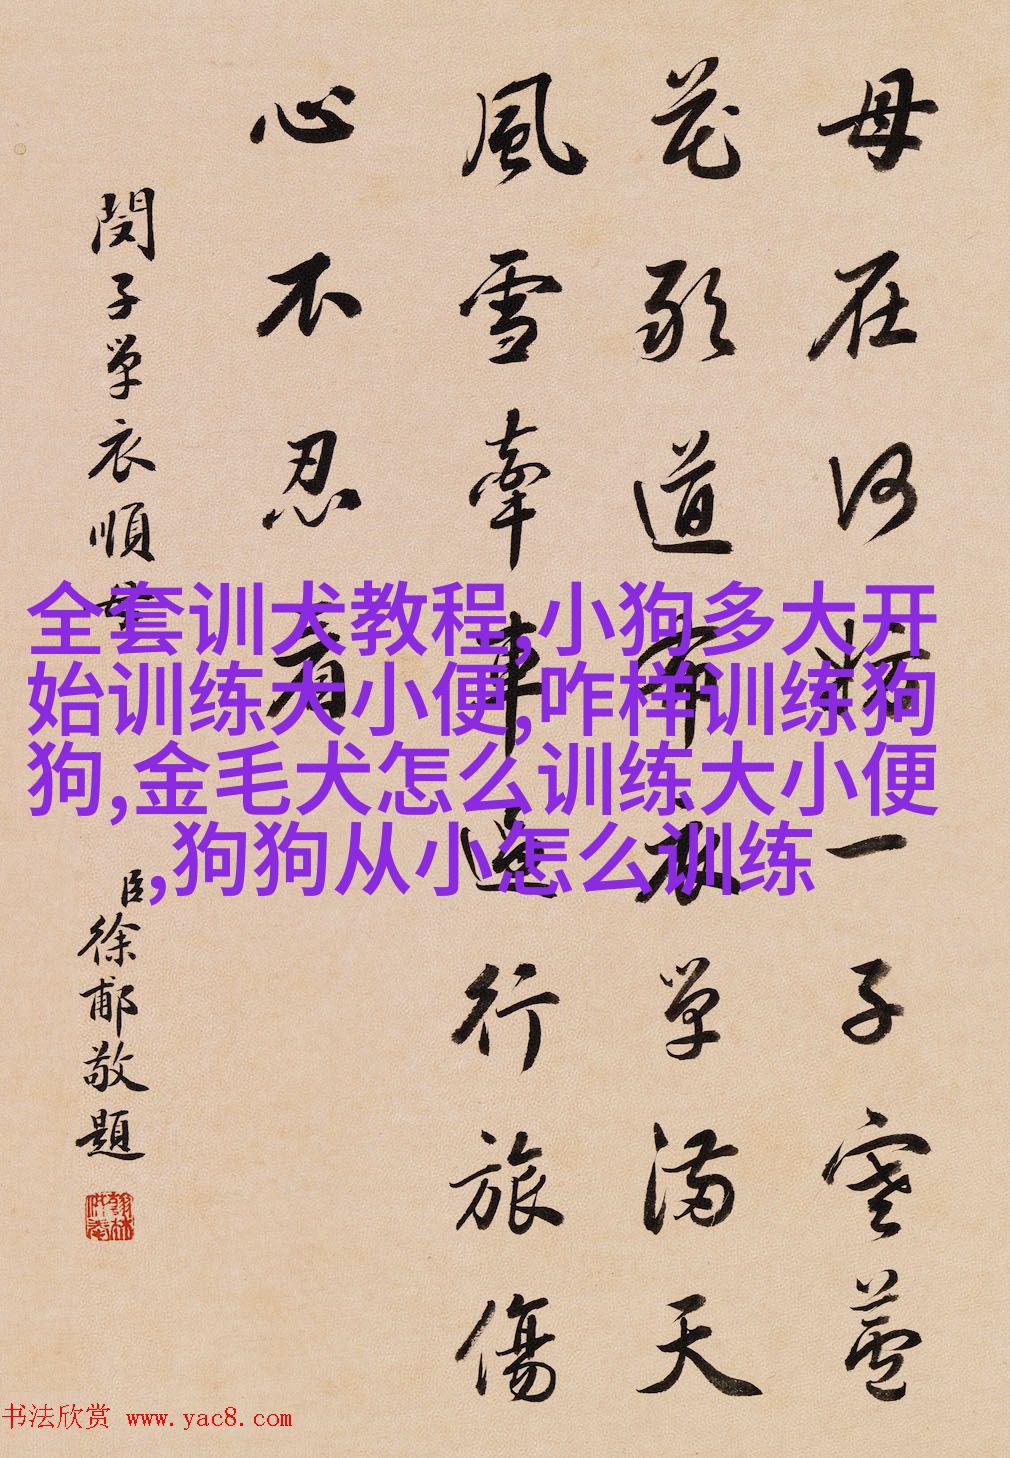 母在何妨一子寒蘆
花敢道布衣單滿天
風雪牽車遠行旅傷
心不忍看
閔子單衣順母
臣徐郙敬題
全套训犬教程,小狗多大开
始训练大小便,咋样训练狗
狗,金毛犬怎么训练大小便
,狗狗从小怎么训练
书法欣赏 www.yac8.com